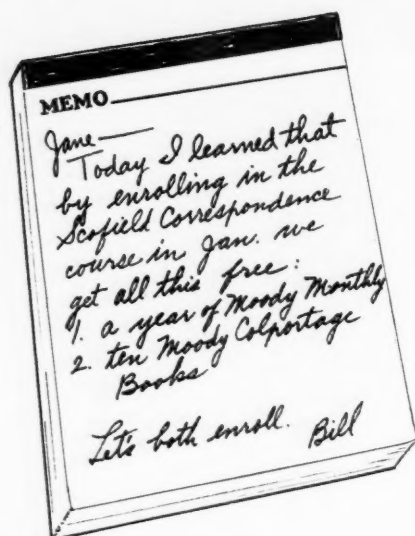 MEMO
Jane—
Today I learned that
by enrolling in the
Scofield Correspondence
course in Jan. we
get all this free:
1. a year of Moody Monthly
2. ten Moody Colportage
Books
Let's both enroll.
Bill